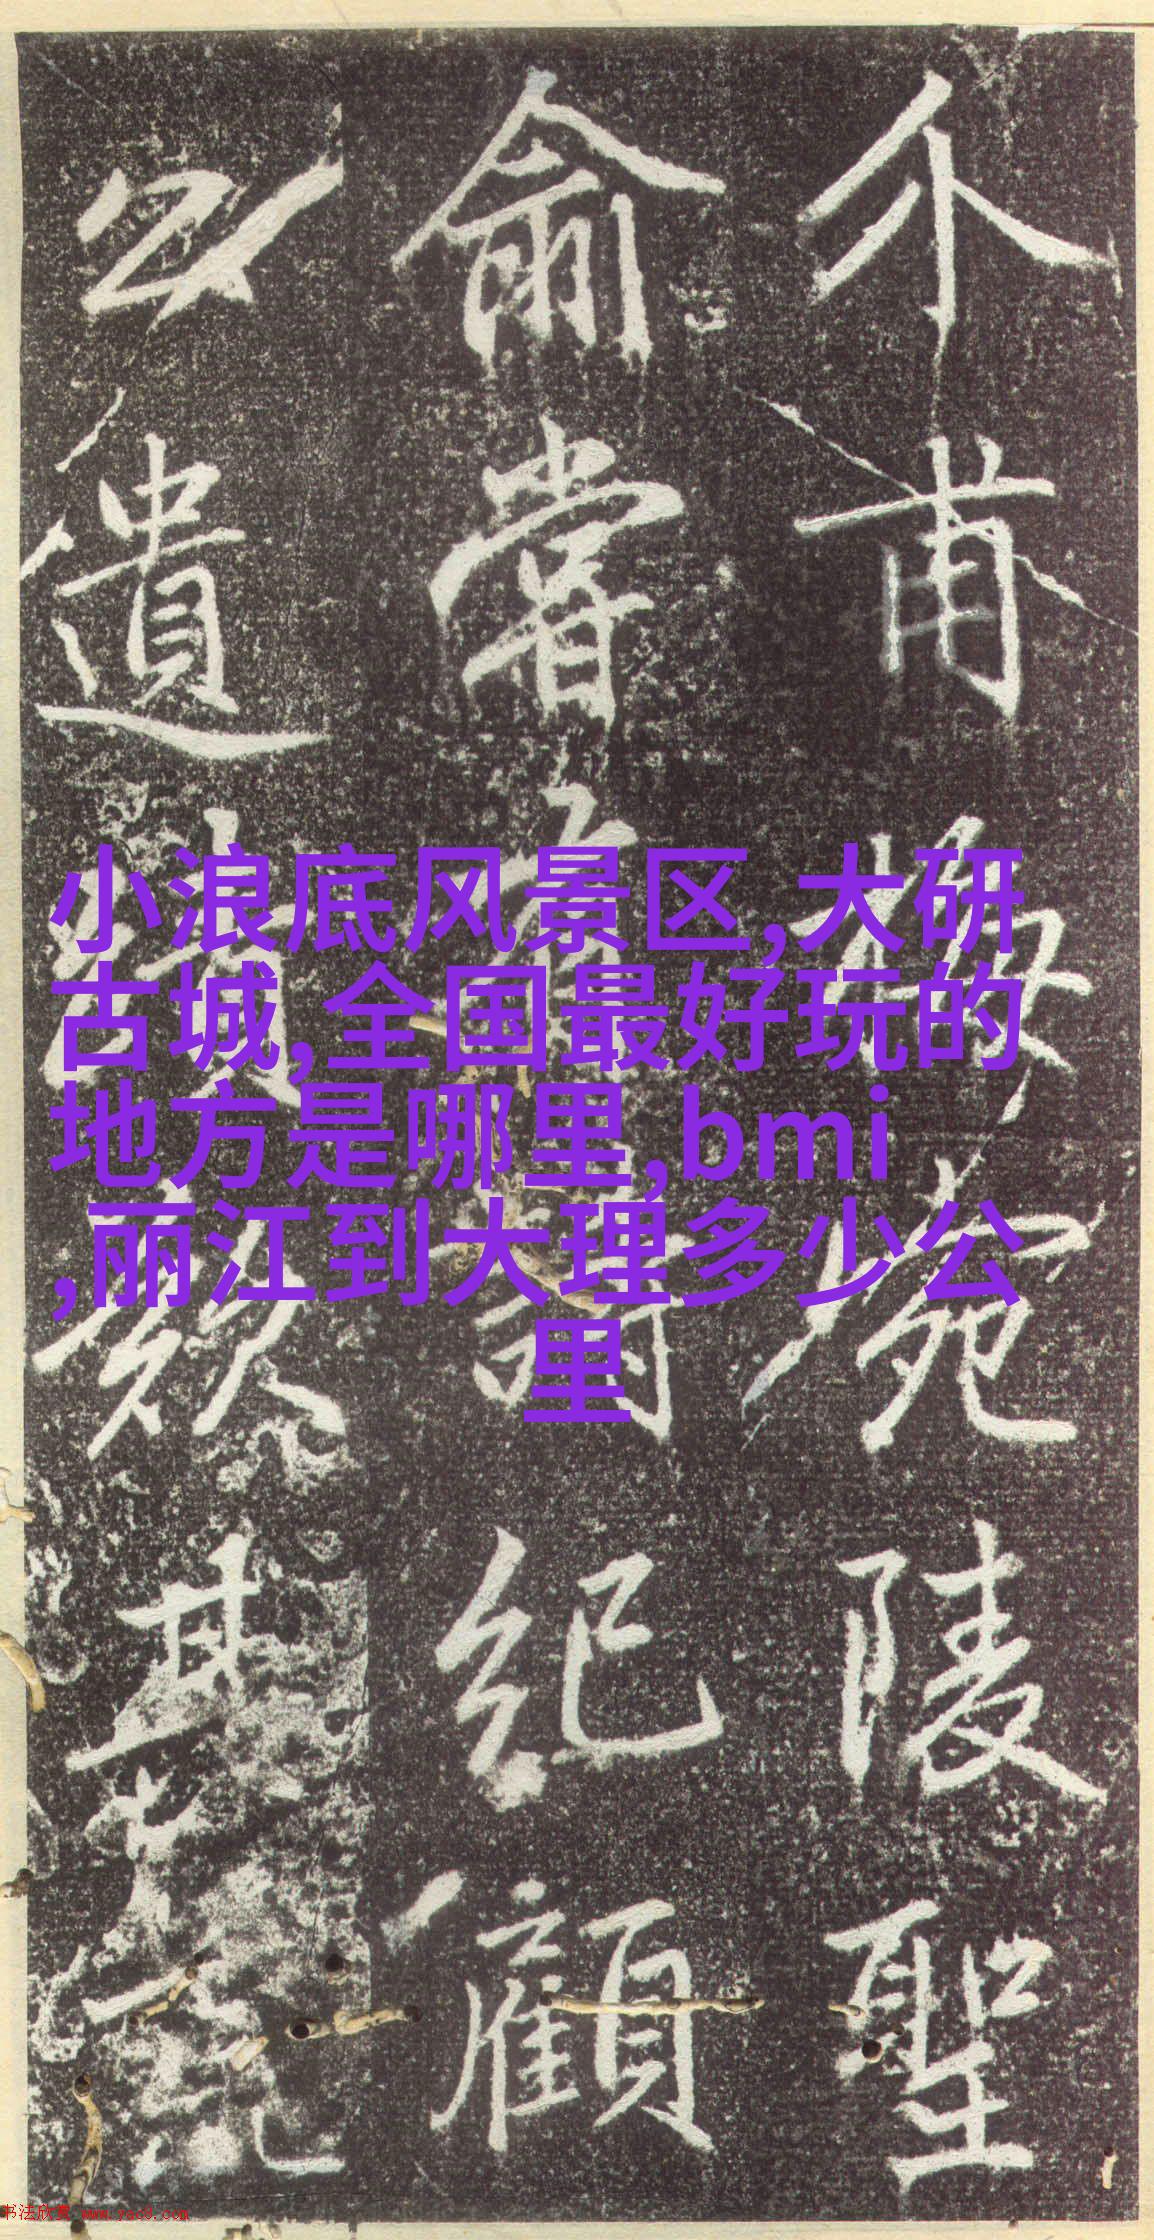 介甫梅宛陵聖
俞嘗
紀顧
公遺
其
小浪底风景区,大研
古城,全国最好玩的
地方是哪里,bmi
,丽江到大理多少公
里
书法欣赏 www.yac8.com